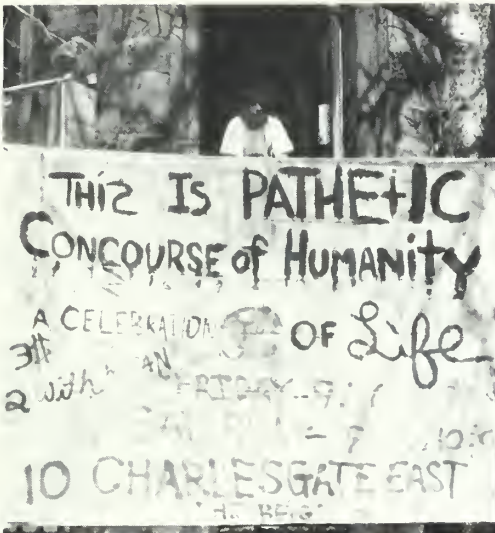 THIS IS PATHEtIC
CONCOURSE of HUMANitY
A CELEBRATION OF Life
3#
2 with AN
FRIDAY
10 CHARLESGATE EAST